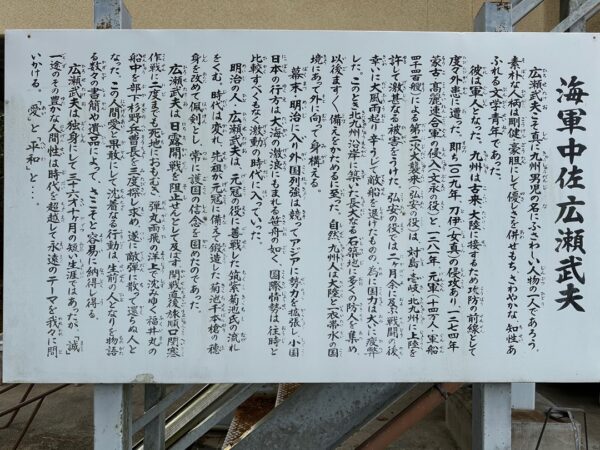 海軍中佐 広瀬武夫
広瀬武夫こそ真に九州男児の名にふさわしい人物の一人であろう。
素朴な人柄は剛健、豪胆にして優しさを併せもち、さわやかな知性あ
ふれる文学青年であった。
彼は軍人となった。九州は古来大陸に接するため攻防の前線として
度々外患に遭った。即ち一〇一九年刀伊(女真)の侵攻あり、一二七四年
蒙古・高麗連合軍の侵入(文永の役)と、一二八一年元軍(十四万人・軍船
四千四百艘)による第二次大襲来(弘安の役)は、対馬・壱岐、北九州に上陸を
許して激甚なる被害をうけた。弘安の役では二ヶ月余に及ぶ戦闘の後、
幸いに大風雨起り辛うじて敵船を退けたものの、為に国力は大いに疲弊
した。このとき北九州沿岸に築いた長大なる石築地に多くの防人を集め
以後ますます備えをかためるに至った。自然、九州人は大陸と一衣帯水の国
境にあって外に向って身構える。
幕末、明治に入り外国列強は競ってアジアに勢力を拡張し、小国
日本の行方は大海の激浪にもまれる笹舟の如く、国際情勢は往時と
比較すべくもなく激動の時代に入っていった。
明治の人・広瀬武夫は、元冠の役に善戦した筑紫菊池氏の流れ
をくむ。時代は変れ、先祖が元冠に備えて鍛造した菊池千本槍の穂
身を改めて佩剣とし、常に護国の信念を固めたのであった。
広瀬武夫は日露開戦を阻止せんとして及ばず、開戦直後旅順口閉塞
作戦に二度までも死地におもむき、弾丸雨飛の洋上で沈みゆく福井丸の
船中を部下杉野兵曹長を三度探し求め、遂に敵弾に散って還らぬ人と
なった。この人間愛と果敢にして沈着なる行動は、生前の人となりを物語
る数々の書簡や遺品によって、さこそと容易に納得し得る。
広瀬武夫は独身にして三十六才十ヶ月の短い生涯ではあったが、「誠」
一途のその豊かな人間性は時代を超越して永遠のテーマを我々に問
いかける。〝愛〟と〝平和〟と・・・